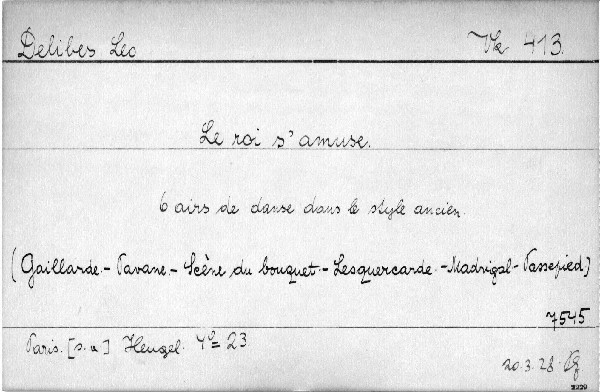 Delibes Leo Vk 413.
Le roi s'amuse.
6 airs de danse dans le style ancien.
(Gaillarde.- Pavane.- Scène du bouquet.- Lesquercarde.-Madrigal-Passepied.)
7545
Paris. [s. a.] Heugel. 4º= 23
20.3.28.
2229